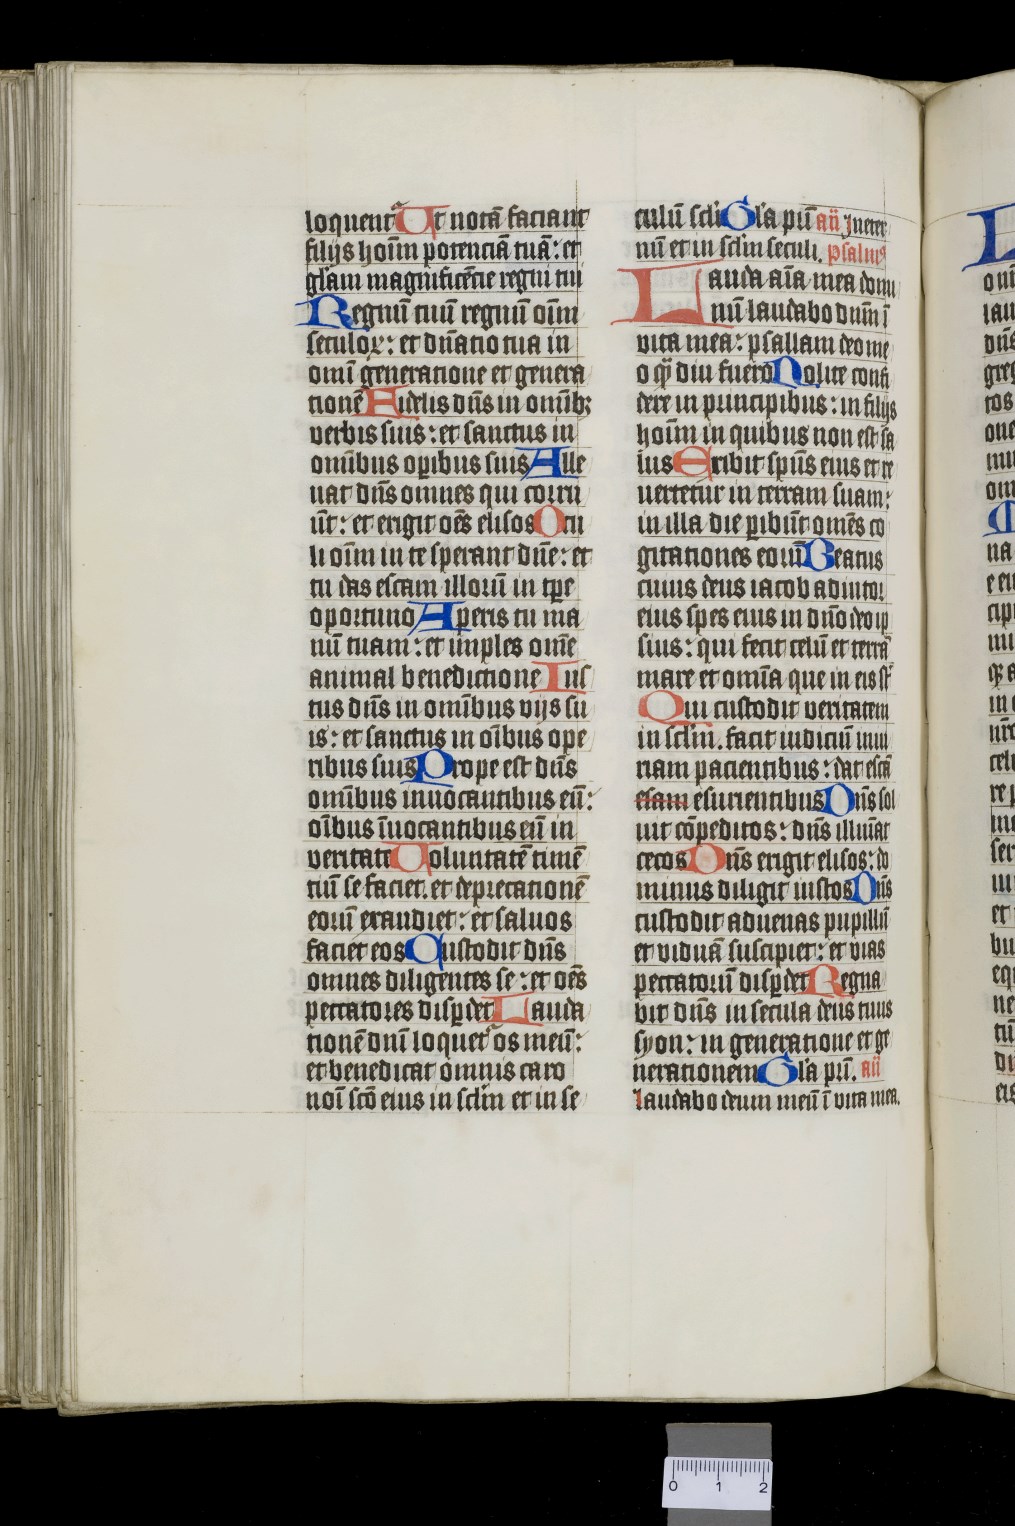 loquentᷓ Ut notā faciant
filijs hoīm potenciā tuā: et
glām magnificēcie regni tui
Regnū tuū regnū oīm
seculoꝝ: et dn̄atio tua in
omī generatione et genera
tionē Fidelis dn̄s in omībꝫ
verbis suis: et sanctus in
omībus oꝑibus suis Alle
uat dn̄s omnes qui corru
ūt: et erigit oēs elisos Ocu
li oīm in te sperant dn̄e: et
tu das escam illorū in tꝑe
oportuno Aperis tu ma
nū tuam: et imples om̄e
animal benedictione Ius
tus dn̄s in omībus vijs su
is: et sanctus in oībus ope
ribus suis Prope est dn̄s
omībus inuocantibus eū:
oībus īuocantibus eū in
veritate Voluntatē timē
tiū se faciet. et deprecationē
eorū exaudiet: et saluos
faciet eos Custodit dn̄s
omnes diligentes se: et oēs
peccatores disꝑdet Lauda
tionē dnī loquetᷓ os meū:
et benedicat omnis caro
noī scō eius in sclm̄ et in se
culū scli Glā pr̄ī añ Jneter
nū et in sclm̄ seculi. psalmꝰ
Lauda aīa mea domi
nū laudabo dnm̄ ī
vita mea: psallam deo me
o qͣ̄ diu fuero Nolite confi
dere in principibus: in filijs
hoīm in quibus non est sa
lus Exibit spūs eius et re
uertetur in terram suam:
in illa die ꝑibūt omēs co
gitationes eorū Beatus
cuius deus iacob adiutor
eius spes eius in dn̄o deo ip
sius: qui fecit celū et terrā
mare et omīa que in eis st̄
Qui custodit veritatem
in sclm̄. facit iudiciū iniu
riam pacientibus: dat escā
esam esurientibus Dn̄s sol
uit cōpeditos: dn̄s illuīat
cecos Dn̄s erigit elisos: do
minus diligit iustos Dn̄s
custodit aduenas pupillū
et viduā suscipiet: et vias
peccatorū disꝑdet Regna
bit dn̄s in secula deus tuus
syon: in generatione et ge
nerationem Glā pr̄ī. añ
laudabo deum meū ī vita mea.